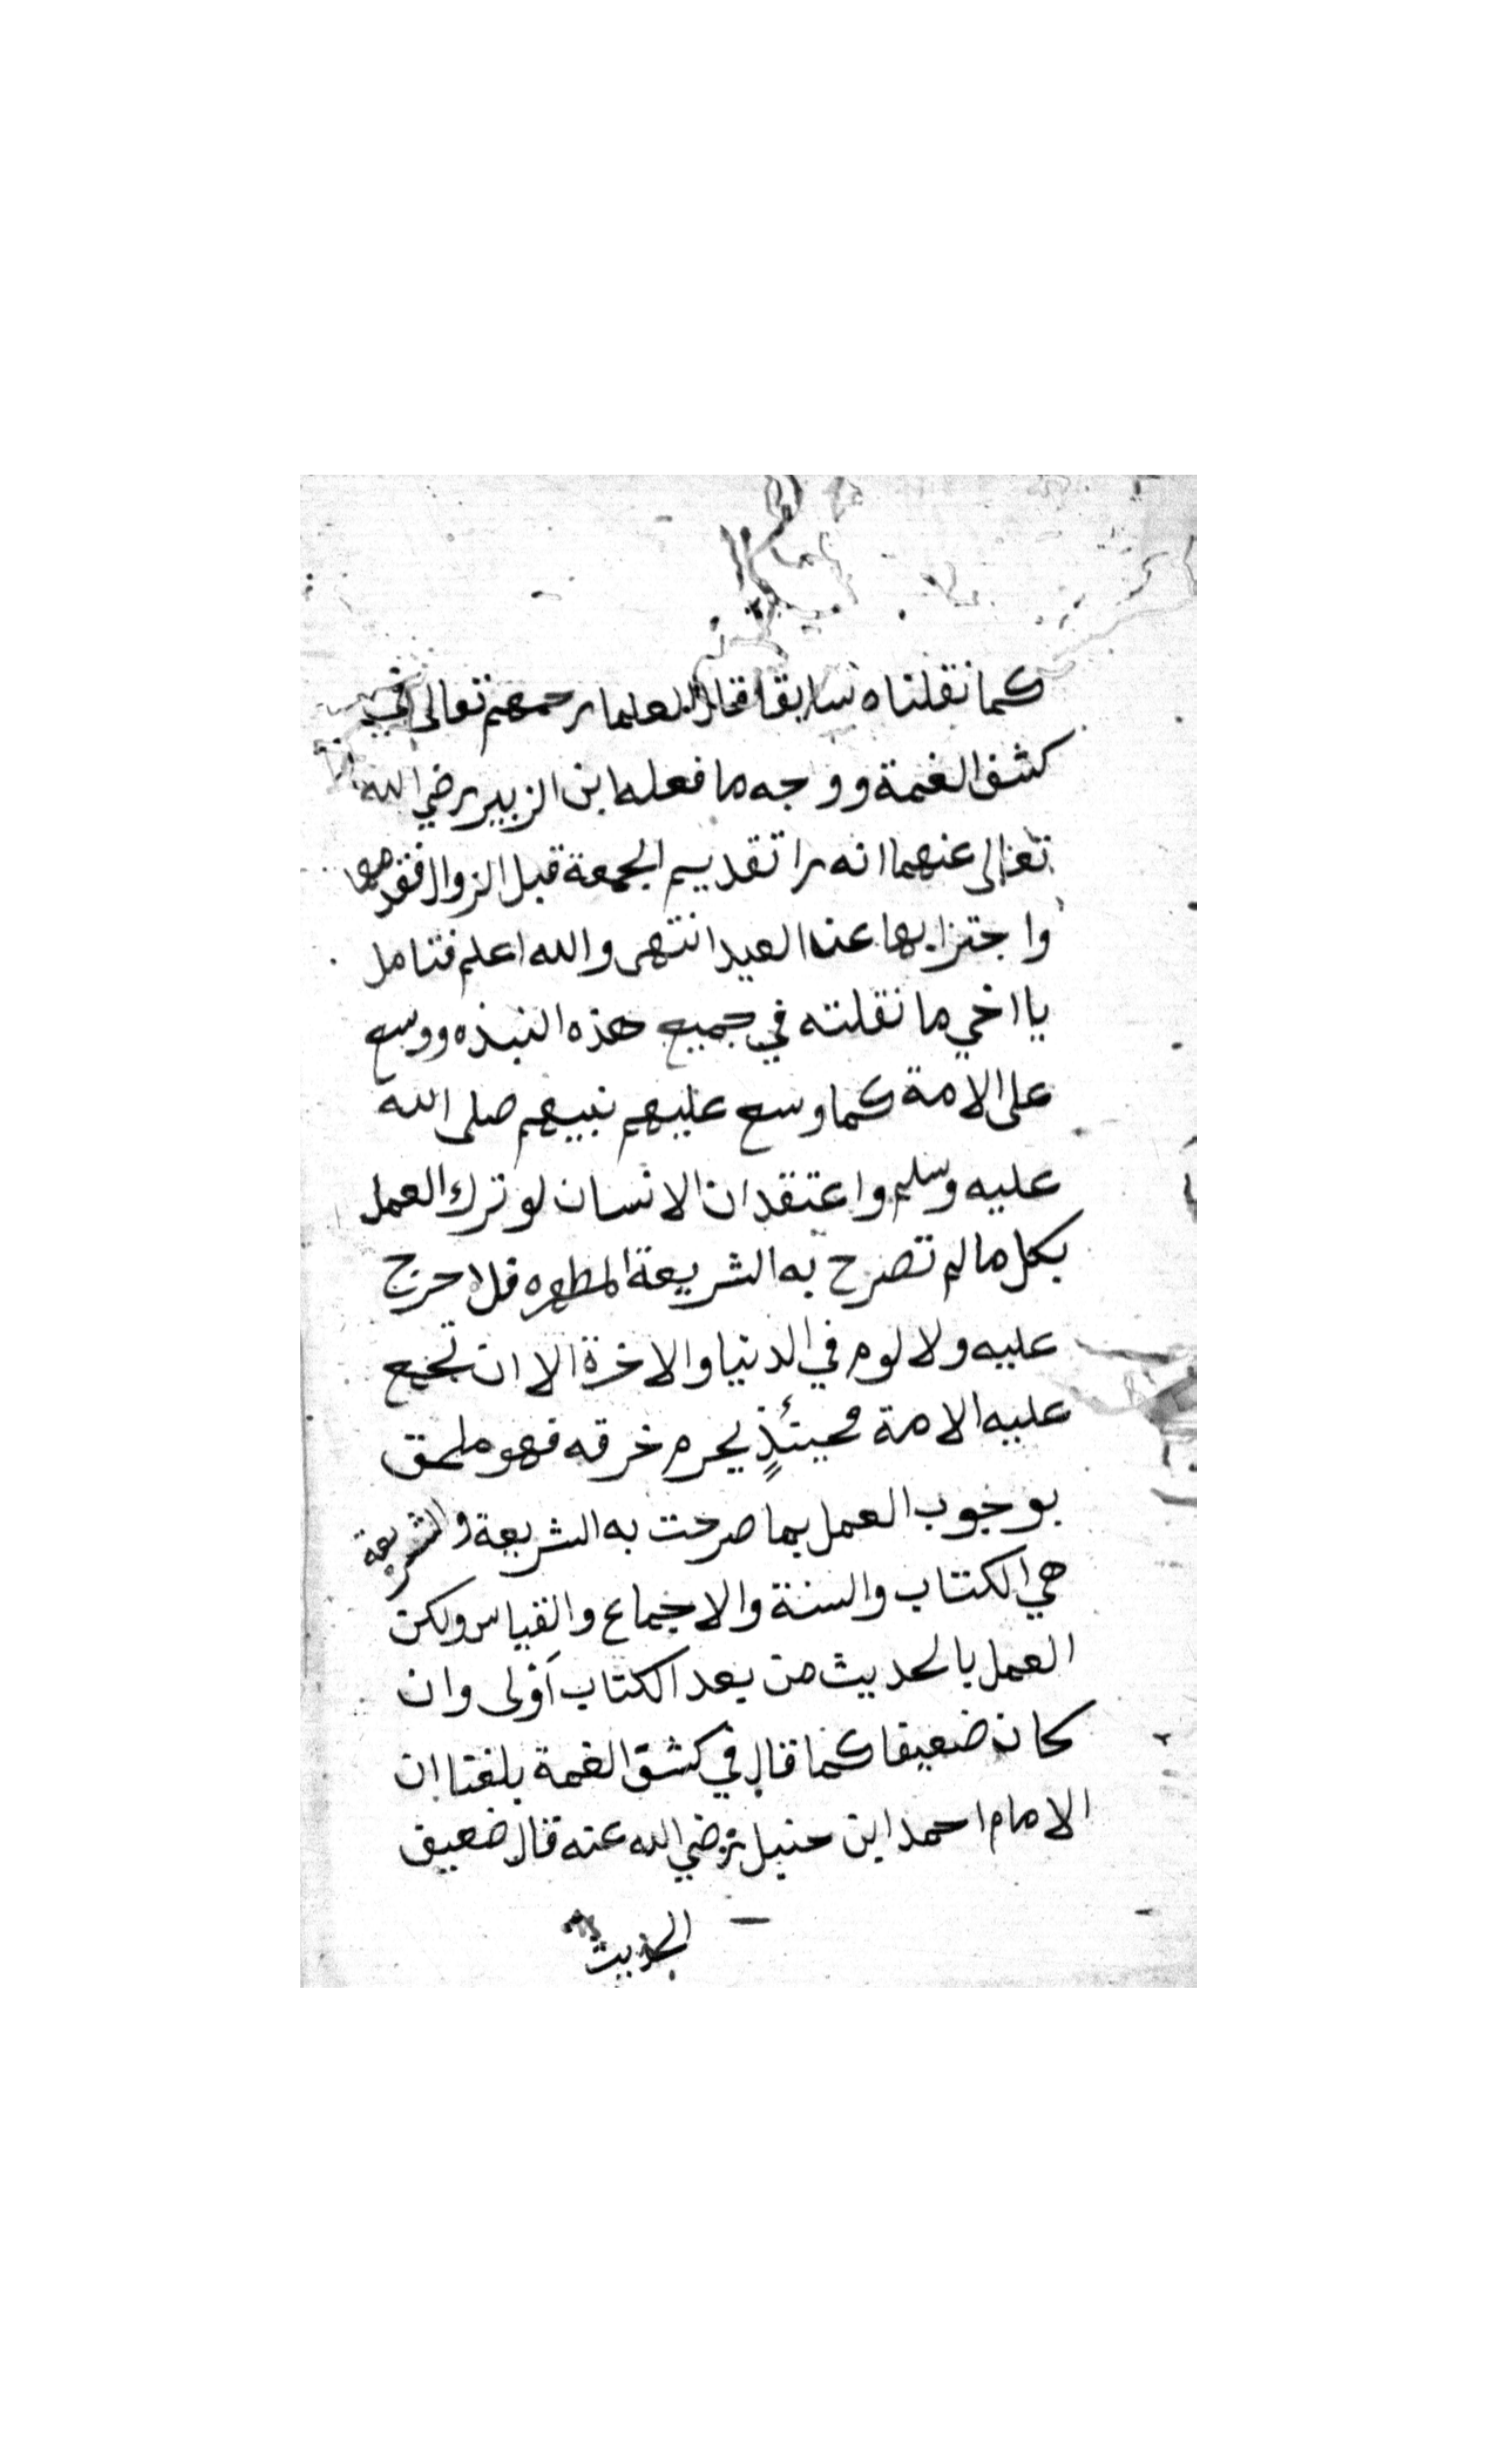 كما نقلناه سابقا قال العلما رحمهم تعالى في
كشف الغمة ووجه ما فعله ابن الزبير رضي الله
تعالى عنهما انه را تقديم الجمعة قبل الزوال فقدمها
واجتزا بها عن العيد انتهى والله اعلم فتامل
يا اخي ما نقلته في جميع هذه النبذه ووسع
على الامة كما وسع عليهم نبيهم صلى الله
عليه وسلم واعتقد ان الانسان لو ترك العمل
بكل ما لم تصرح به الشريعة المطهره فلا حرج
عليه ولا لوم في الدنيا والاخرة الا ان تجمع
عليه الامة فحينئذٍ يحرم خرقه فهو ملحق
بوجوب العمل بما صرحت به الشريعة والشريعة
هي الكتاب والسنة والاجماع والقياس ولكن
العمل بالحديث من بعد الكتاب أولى وان
كان ضعيفا كما قال في كشف الغمة بلغنا ان
الامام احمد ابن حنبل رضي الله عنه قال ضعيف
الحديث